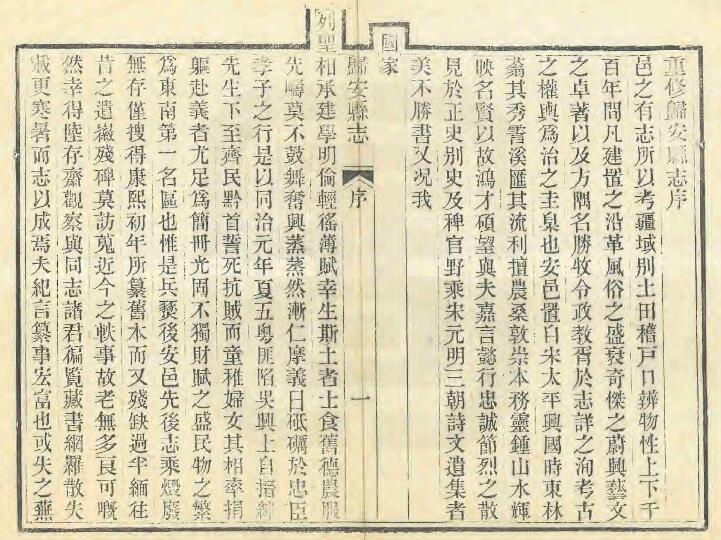 重修歸安縣志序
邑之有志所以考疆域別土田稽戶口辨物性上下千
百年間凡建置之沿革風俗之盛衰奇傑之蔚興藝文
之卓著以及方隅名勝牧令政教胥於志詳之洵考古
之權輿爲治之圭臬也安邑置自宋太平興國時東林
蓊其秀霅溪匯其流利擅農桑敦崇本務靈鍾山水輝
映名賢以故鴻才碩望與夫嘉言懿行忠誠節烈之散
見於正史別史及稗官野乘宋元明三朝詩文遺集者
美不勝書又況我
國家
歸安縣志 序 一
列聖相承建學明倫輕徭薄賦幸生斯土者士食舊德農服
先疇莫不鼓舞奮興蒸蒸然漸仁摩義日砥礪於忠臣
孝子之行是以同治元年夏五粵匪陷吳興上自搢紳
先生下至齊民黔首誓死抗賊而童稚婦女其相率捐
軀赴義者尤足爲簡冊光固不獨財賦之盛民物之繁
爲東南第一名區也惟是兵燹後安邑先後志乘燬廢
無存僅搜得康熙初年所纂舊本而又殘缺過半緬往
昔之遺徽殘碑莫訪蒐近今之軼事故老無多良可嘅
然幸得陸存齋觀察與同志諸君徧覽藏書網羅散失
載更寒暑而志以成焉夫紀言纂事宏富也或失之蕪